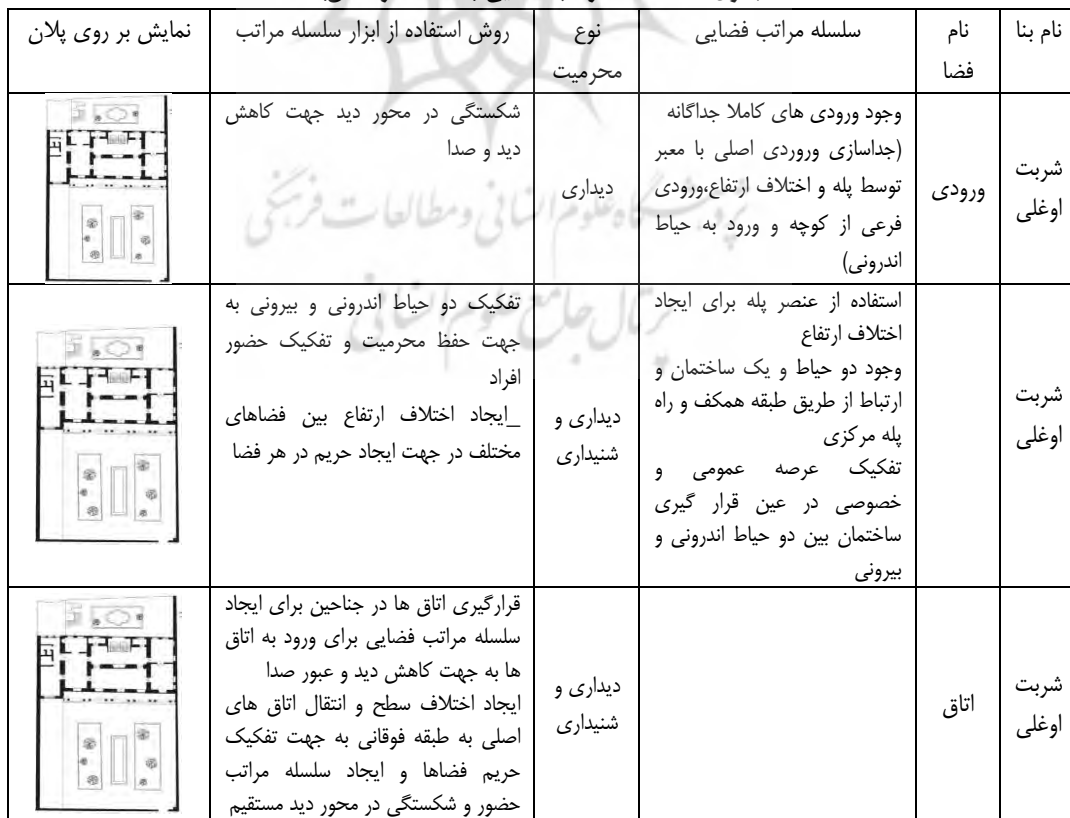 نام بنا
نام
فضا
سلسله مراتب فضایی
نوع
محرمیت
روش استفاده از ابزار سلسله مراتب
نمایش بر روی پلان
شربت
اوغلی
ورودی
وجود ورودی های کاملا جداگانه
(جداسازی وروردی اصلی با معبر
توسط پله و اختلاف ارتفاع،ورودی
فرعی از کوچه و ورود به حیاط
اندرونی)
دیداری
شکستگی در محور دید جهت کاهش
دید و صدا
شربت
اوغلی
استفاده از عنصر پله برای ایجاد
اختلاف ارتفاع
وجود دو حیاط و یک ساختمان و
ارتباط از طریق طبقه همکف و راه
پله مرکزی
تفکیک عرصه عمومی و
خصوصی در عین قرار گیری
ساختمان بین دو حیاط اندرونی و
بیرونی
دیداری و
شنیداری
تفکیک دو حیاط اندرونی و بیرونی به
جهت حفظ محرمیت و تفکیک حضور
افراد
_ایجاد اختلاف ارتفاع بین فضاهای
مختلف در جهت ایجاد حریم در هر فضا
شربت
اوغلی
اتاق
دیداری و
شنیداری
قرارگیری اتاق ها در جناحین برای ایجاد
سلسله مراتب فضایی برای ورود به اتاق
ها به جهت کاهش دید و عبور صدا
ایجاد اختلاف سطح و انتقال اتاق های
اصلی به طبقه فوقانی به جهت تفکیک
حریم فضاها و ایجاد سلسله مراتب
حضور و شکستگی در محور دید مستقیم
پژوهشگاه علوم انسانی و مطالعات فرهنگی
پرتال جامع علوم انسانی